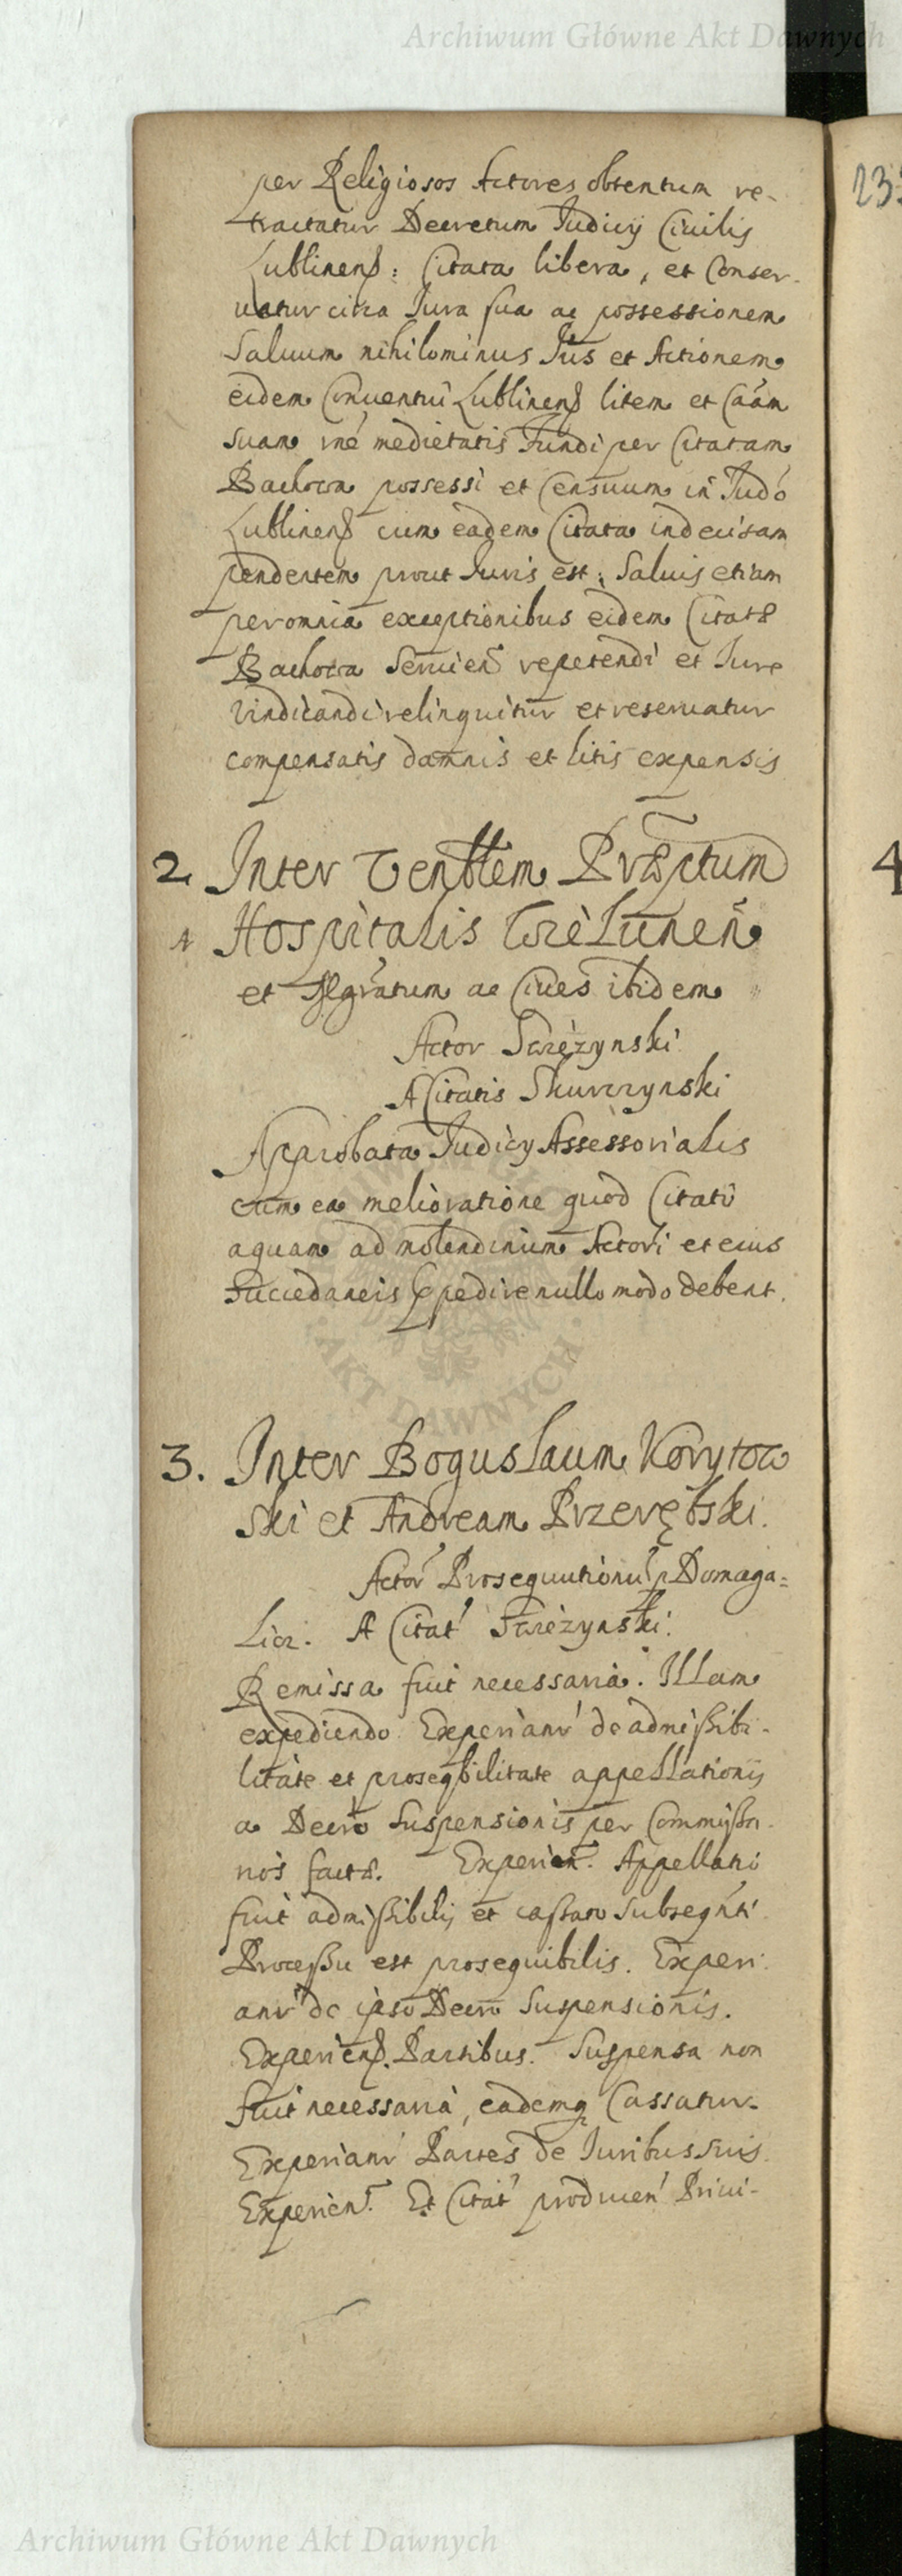 Archiwum Główne Akt Dawnych
per Religiosos Actores obtentum re-
tractatur Decretum Judicij Civilis
Lublinens: Citata libera, et Conser-
vatur circa Jura sua ac possessionem
Salvum nihilominus Jus et Actionem
eidem Conventui Lublinens litem et Caâm
suam rnê medietatis Fundi per Citatam
possessi et Censuum in Judô
Lublinens cum eadem Citata indecisam
pendentem prout Juris est; Salvis etiam
per omnia exceptionibus eidem Citatæ
Servien repetendi et Jure
vindicandi relinquitur et reservatur
compensatis damnis et litis expensis
2. Inter Venblem Præptum
Hospitalis Wielunen
et Mgratum ac Cives ibidem
Actor Swieżynski
A Citatis Skurczynski
Approbata Judicij Assessorialis
cum ea melioratione quod Citati
aquam ad molendinum Actori et eius
Succedaneis jpedire nullo modo debent.
AKT DAWNYCH
3. Inter Boguslaum Korytow
ski et Andream Przerębski.
Actor Prosequutionis p Domaga=
Licz. A Citat Swieżynski.
Remissa fuit necessaria. Illam
expediendo Experianr de admissibi-
litate et proseqbilitate appellationis
a Decrô Suspensionis per Commissri-
nos factæ. Experien. Appellatio
fuit admissibilis et cassato subseqnti
Processu est prosequibilis. Experi
anr de ipso Decrô Suspensionis.
Experiens. Partibus. Suspensa non
fuit necessaria, eademq Cassatur.
Experianr Partes de Juribus suis.
Experien. Et Citat producen Privi-
23
4
Archiwum Główne Akt Dawnych